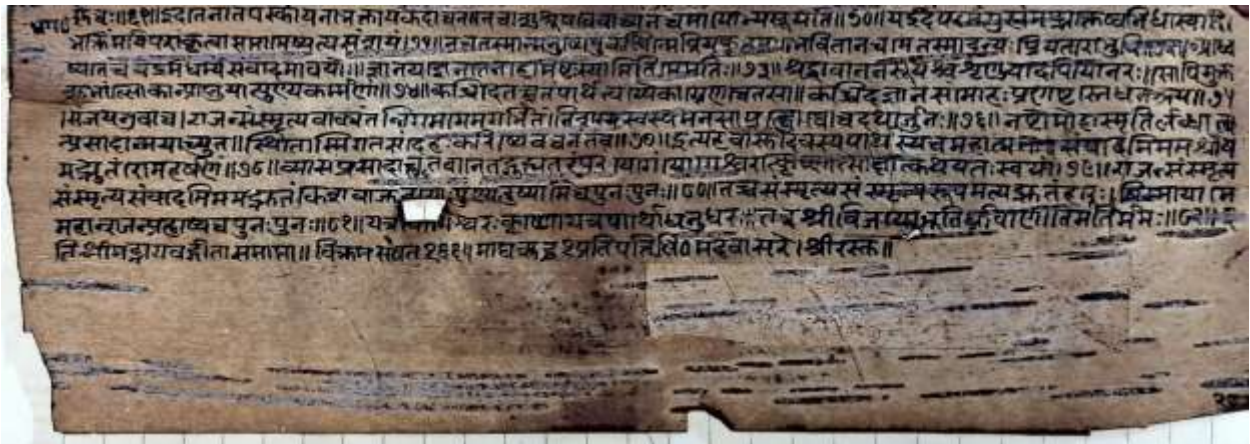 शुचः॥६९॥इदं ते नातपस्काय नाभक्ताय कदाचन॥न चाशुश्रूषवे वाच्यं न च मां योभ्यसूयति॥७०॥य इदं परमं गुह्यं मद्भक्तेष्वभिधास्यति।
भक्तिं मयि परां कृत्वा मामेष्यत्यसंशयं॥७१॥न च तस्मान्मनुष्येषु कश्चिन्मे प्रियकृत्तमः॥भविता न च मे तस्मादन्यः प्रियतरो भुवि
ष्यते च य इमं धर्म्यं संवादमावयोः॥ज्ञानयज्ञेन तेनाहमिष्टः स्यामिति मे मतिः॥७३॥श्रद्धावाननसूयश्च शृणुयादपि यो नरः॥सोपि मुक्तः
शुभांल्लोकान्प्राप्नुयात्पुण्यकर्मणां॥७४॥कच्चिदेतच्छ्रुतं पार्थ त्वयैकाग्रेण चेतसा॥कच्चिदज्ञानसंमोहः प्रणष्टस्ते धनंजय॥७५
संजय उवाच। राजन्संस्मृत्य अर्जुनः॥७६॥नष्टो मोहः स्मृतिर्लब्धा त्व
त्प्रसादान्मयाच्युत॥स्थितोस्मि गतसंदेहः करिष्ये वचनं तव॥७७॥इत्यहं वासुदेवस्य पार्थस्य च महात्मनः॥संवादमिममश्रौष
मद्भुतं रोमहर्षणं॥७८॥व्यासप्रसादाच्छ्रुतवानेतद्गुह्यतरं परं॥योगं योगेश्वरात्कृष्णात्साक्षात्कथयतः स्वयं॥७९॥राजन्संस्मृत्य
संस्मृत्य संवादमिममद्भुतं॥केशवार्जुनयोः पुण्यं हृष्यामि च पुनः पुनः॥८०॥तच्च संस्मृत्य संस्मृत्य रूपमत्यद्भुतं हरेः॥विस्मयो मे
महान्राजन्प्रहृष्ये च पुनः पुनः॥८१॥यत्र योगेश्वरः कृष्णो यत्र पार्थो धनुर्धरः॥तत्र श्रीर्विजयो भूतिर्ध्रुवा नीतिर्मतिर्मम॥८२॥इ
ति श्रीमद्भगवद्गीता समाप्ता॥ विक्रम संवत माघ प्रतिपति मंदवासरे। श्रीरस्तु॥